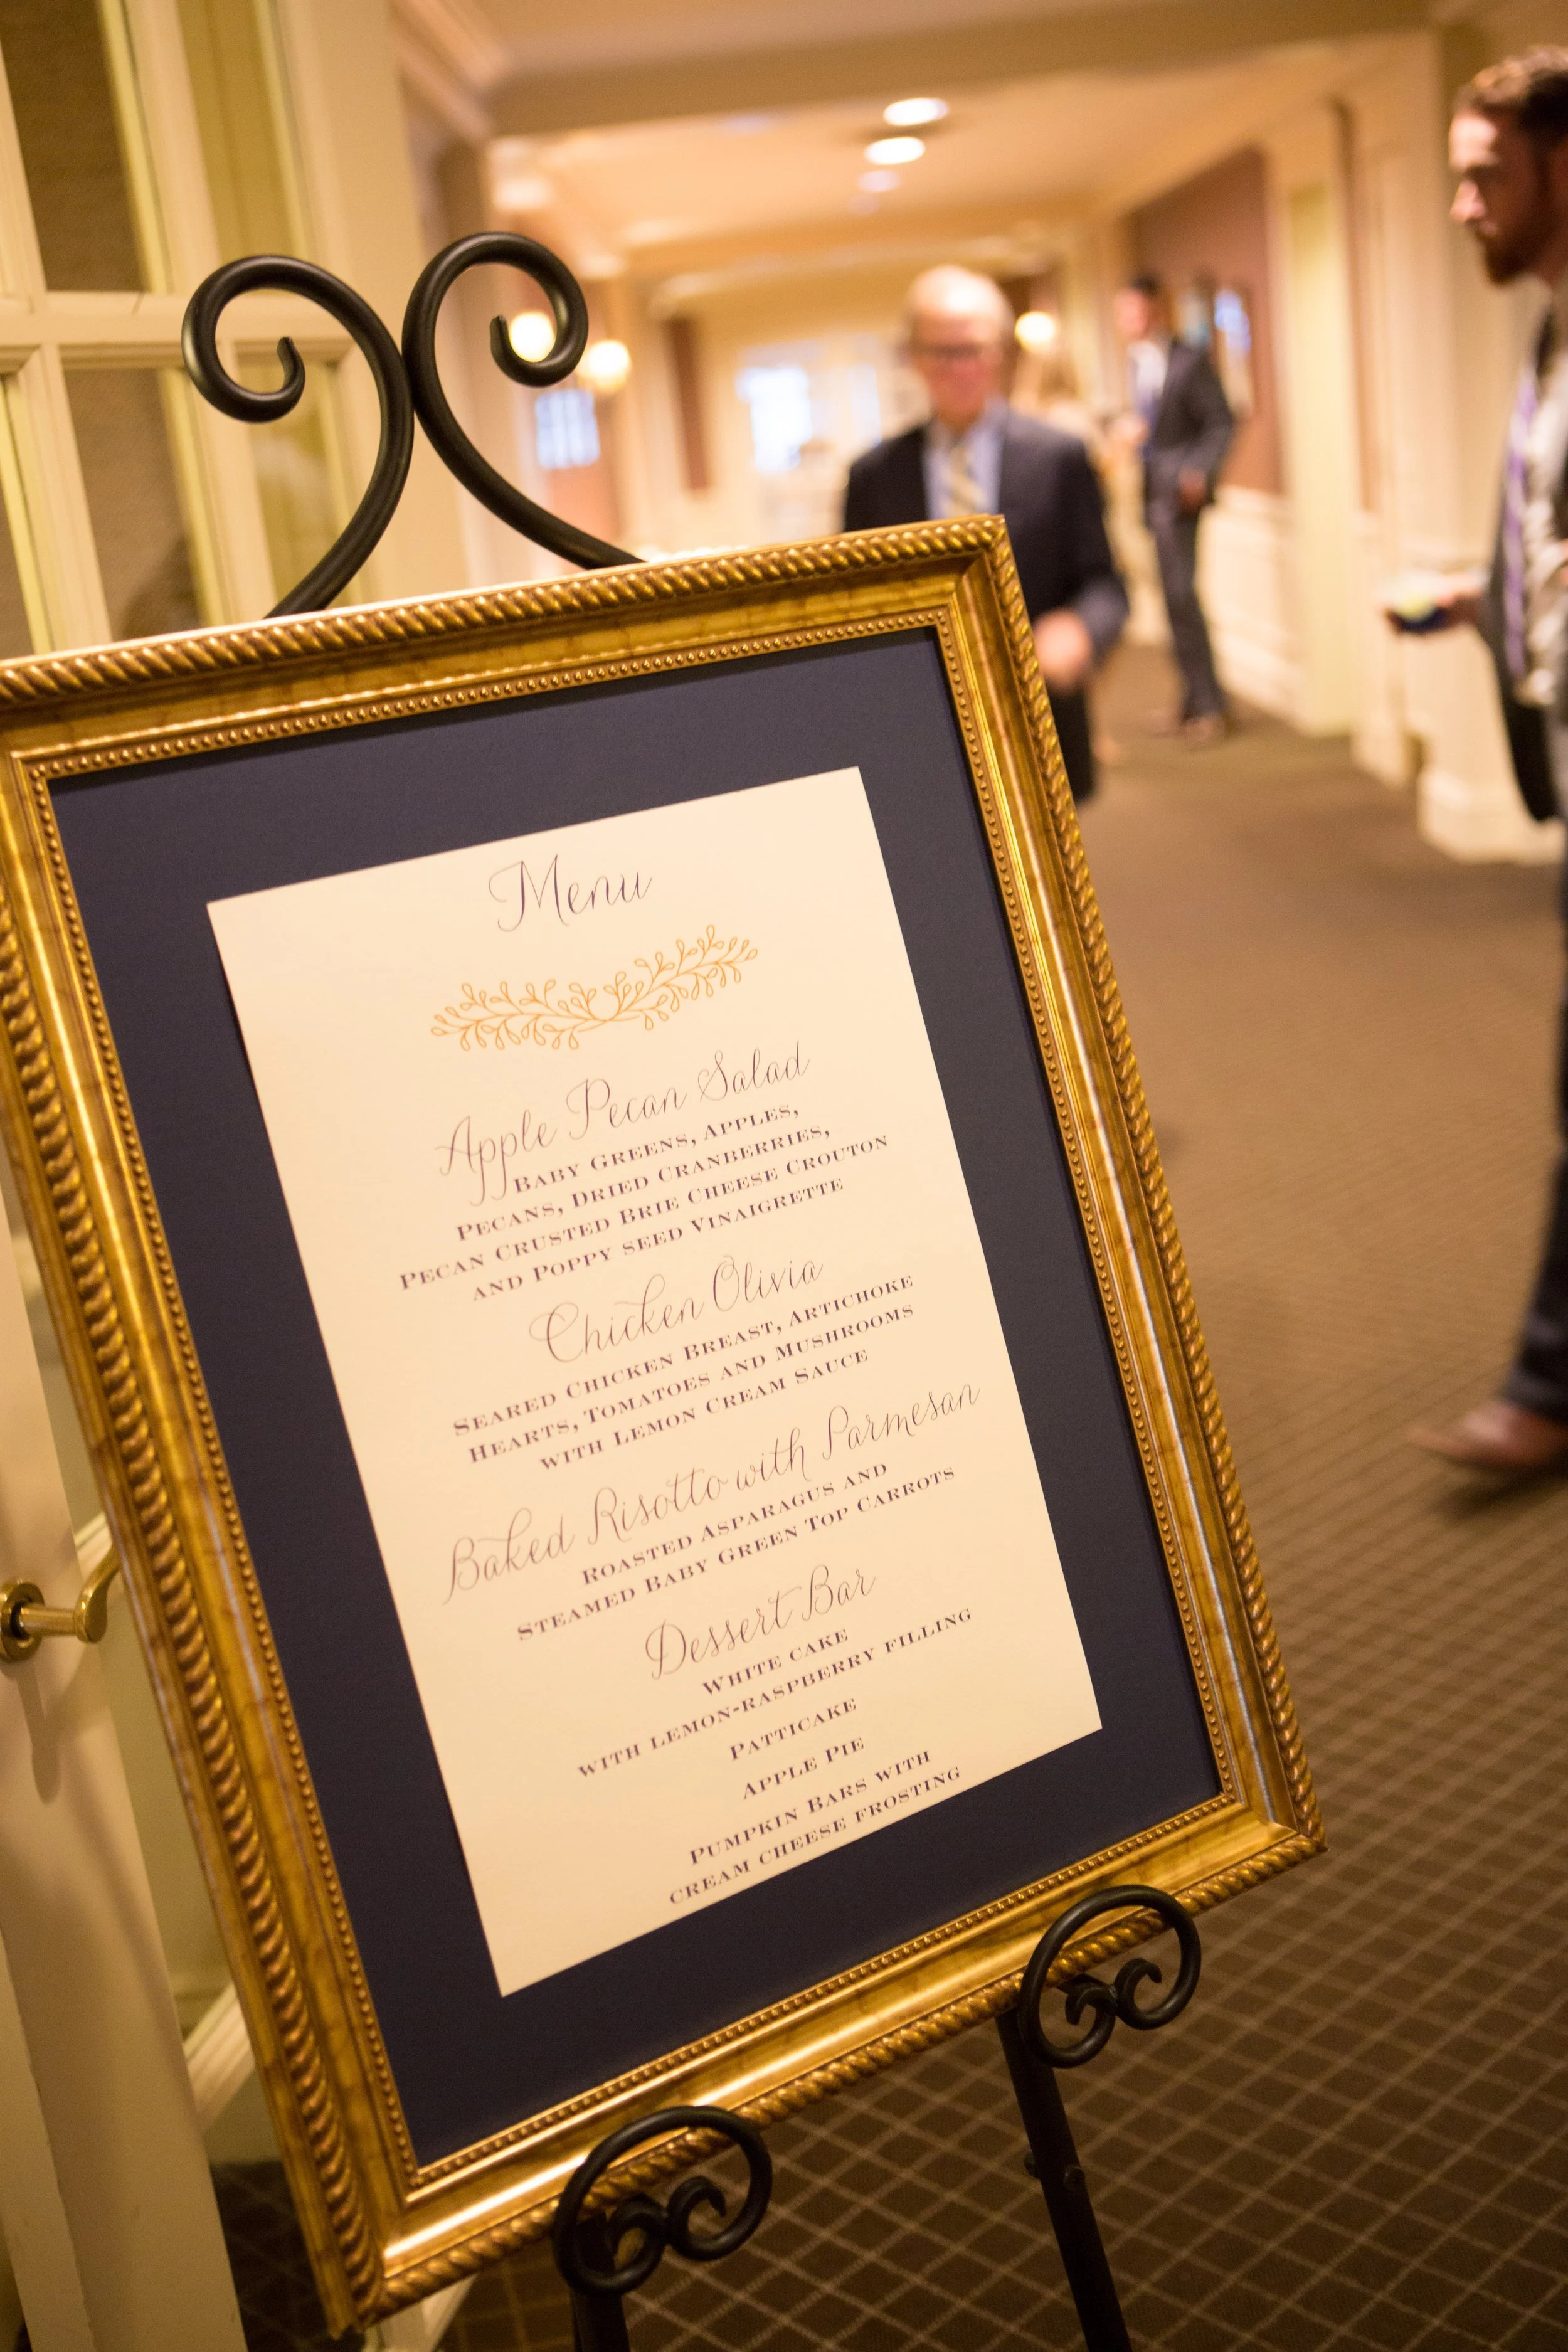 Menu
Apple Pecan Salad
Baby Greens, Apples,
Pecans, Dried Cranberries,
Pecan Crusted Brie Cheese Crouton
and Poppy seed Vinaigrette
Chicken Olivia
Seared Chicken Breast, Artichoke
Hearts, Tomatoes and Mushrooms
with Lemon Cream Sauce
Baked Risotto with Parmesan
Roasted Asparagus and
Steamed Baby Green Top Carrots
Dessert Bar
White cake
with lemon-raspberry filling
Patticake
Apple Pie
Pumpkin Bars with
cream cheese frosting